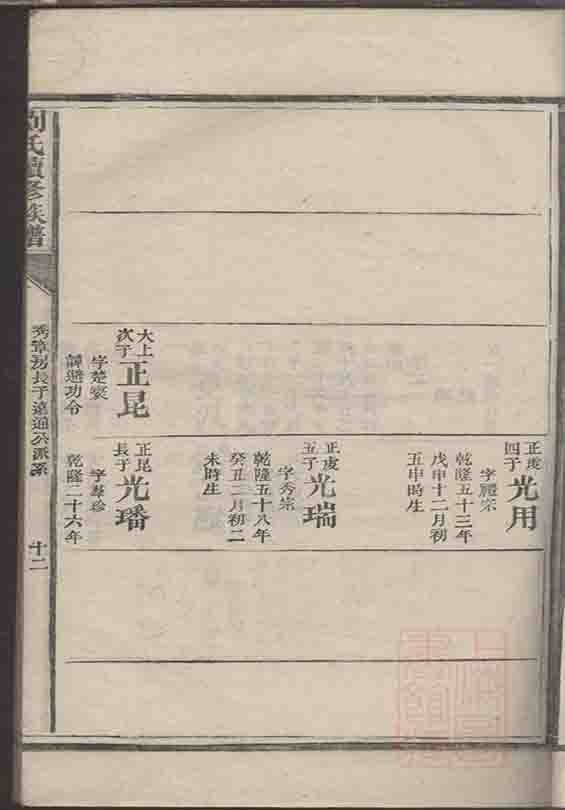 正虔四子 光用
字禮宗
乾隆五十三年
戊申十二月初
五申時生
正虔五子 光瑞
字秀宗
乾隆五十八年
癸丑三月初二
未時生
大上次子 正昆
字楚袞
譚避功令
正昆長子 光璠
字華珍
乾隆二十六年
劉氏續修族譜
秀章房長子遠通公派系
十二